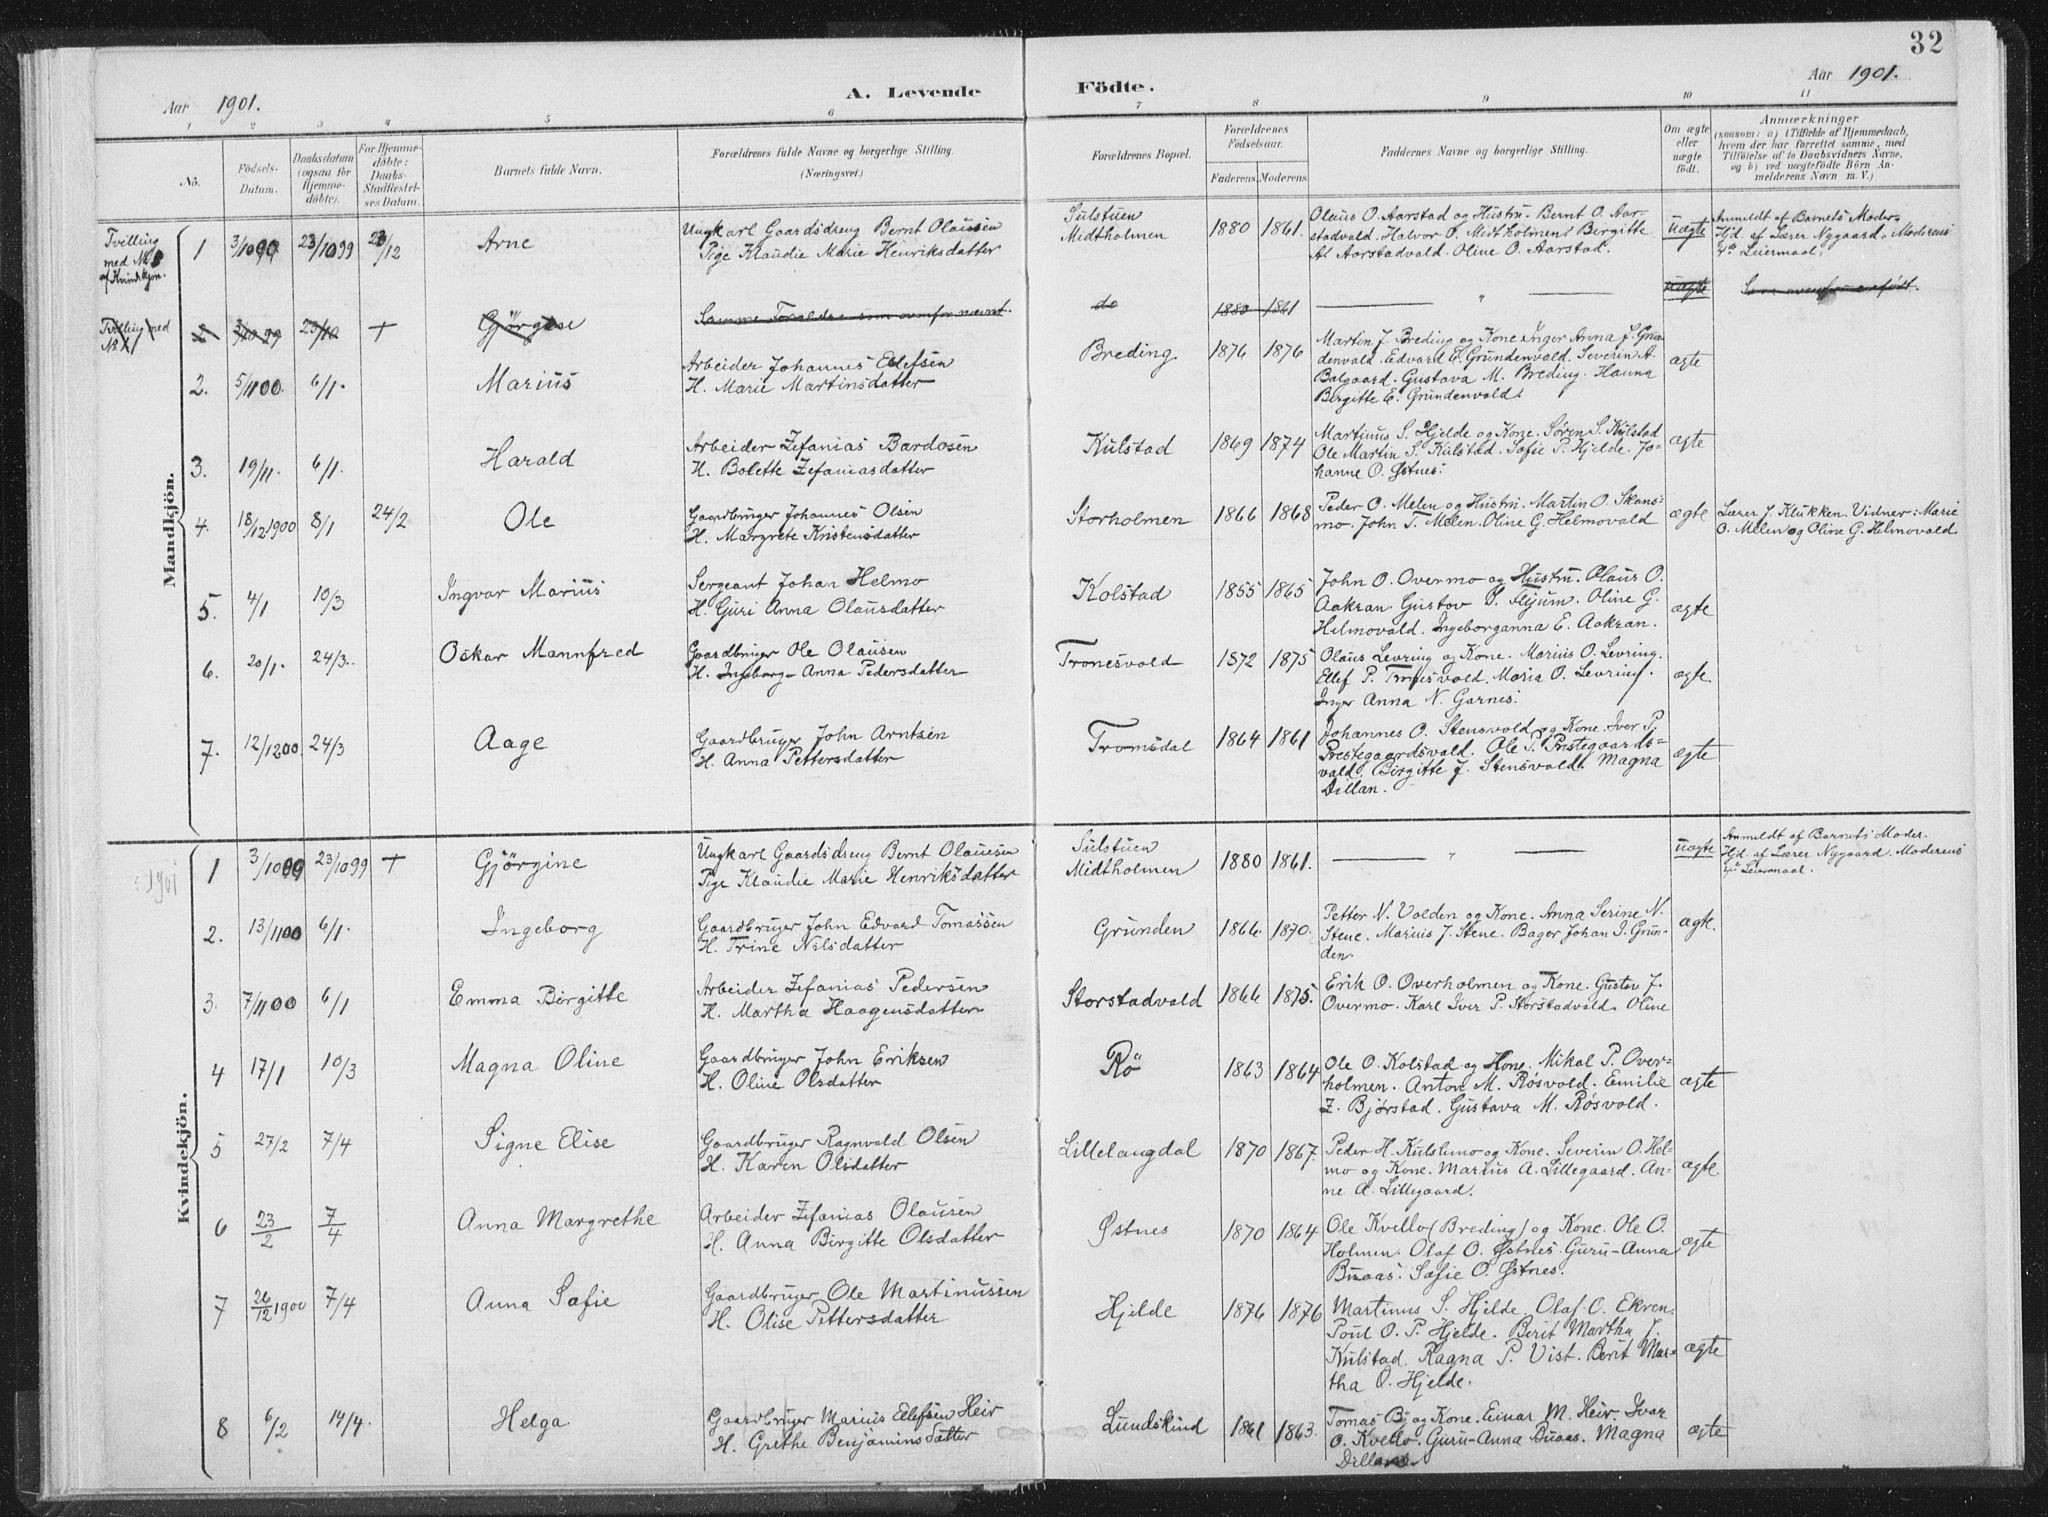 32
Aar 1901.
A. Levende
Födte.
Aar 1901.
1 2 3 4 5 6 7 8 9 10 11
No.
Födsels-
Datum.
Daabsdatum
(ogsaa for
Hjemme-
döbte).
For Hjemme-
döbte:
Daabs-
Stadfæstel-
ses Datum.
Barnets fulde Navn.
Forældrenes fulde Navne og borgerlige Stilling.
(Næringsvei.)
Forældrenes Bopæl.
Forældrenes
Födselsaar.
Faderens. Moderens.
Faddernes Navne og borgerlige Stilling.
Om ægte
eller
uægte
födt.
Anmærkninger
(saasom: a) i Tilfælde af Hjemmedaab,
hvem der har forrettet samme, med
Tilföielse af to Daabsvidners Navne,
og b) ved uægtefödte Börn An-
melderens Navn m. V.)
Mandkjön.
Tvilling
med No
af Kvindekjön.
1 3/10 99 23/10 99 23/12
Arne
Ungkarl Gaardsdreng Bernt Olaussen
Pige Klaudie Marie Henriksdatter
Sulstuen
Midtholmen
1880 1861.
Olaus O. Aarstad og Hustru. Bernt O. Aar-
stadvald. Halvor O. Midtholmen. Birgitte
A. Aarstadvald. Oline O. Aarstad.
uægte
Anmeldt af Barnets Moder
Hjd. af Lærer Nygaard. Moderens
4de Leiermaal.
Tvilling med
No 1
2 3/10 99 23/10 +
Gjörgine
Samme Forældre som ovenfor nævnt.
do
1880 1861
uægte
Som ovenfor anført.
2. 5/11 00. 6/1.
Marius
Arbeider Johannes Ellefsen
H. Marie Martinsdatter
Breding
1876 1876
Martin J. Breding og Kone. Inger Anna J. Grun-
denvald. Edvard E. Grundenvald. Severin A.
Balgaard. Gustava M. Breding. Hanna
Birgitte E. Grundenvald.
ægte
3. 19/11. 6/1.
Harald
Arbeider Zefanias Bardosen
H. Bolette Zefaniasdatter
Kulstad
1869 1874
Martinus S. Hjelde og Kone. Søren S. Kulstad
Ole Martin S. Kulstad. Sofie P. Hjelde. Jo-
hanne O. Østnes.
ægte
4. 18/12 1900 8/1 24/2
Ole
Gaardbruger Johannes Olsen
H. Margrete Kristensdatter
Storholmen
1866 1868
Peder O. Melen og Hustru. Martin O. Skans-
mo. John S. Melen. Oline G. Helmovald
ægte
Lærer J. Klukken. Vidner: Marie
O. Melen og Oline G. Helmovald.
5. 4/1 10/3
Ingvar Marius
Sergeant Johan Helmo
H. Guri Anna Olausdatter
Kolstad
1855 1865
John O. Overmo og Hustru. Olaus O.
Aakran. Gustav S. Flyum. Oline G.
Helmovald. Ingeborganna E. Aakran.
ægte
6. 20/1. 24/3.
Oskar Mannfred
Gaardbruger Ole Olausen
H. Ingeborg-Anna Pedersdatter
Tronesvald
1872 1875
Olaus Levring og Kone. Marius O. Levring.
Ellef P. Tronesvald. Maria O. Levring.
Inger Anna N. Garnes.
ægte.
7. 12/12 00. 24/3
Aage
Gaardbruger John Arntsen
H. Anna Pettersdatter
Tromsdal
1864 1861
Johannes O. Stensvald og Kone. Iver P.
Prestegaardsvald. Ole S. Prestegaards-
vald. Birgitte J. Stensvald. Magna
Dillan.
ægte
Kvindekjön.
1901
1 3/10 99 23/10 99 +
Gjörgine
Ungkarl Gaardsdreng Bernt Olausen
Pige Klaudie Marie Henriksdatter
Sulstuen
Midtholmen
1880 1861.
uægte
Anmeldt af Barnets Moder.
Hjd. af Lærer Nygaard. Moderens
4de Leiermaal.
2. 13/11 00 6/1.
Ingeborg
Gaardbruger John Edvard Tomassen
H. Trine Nilsdatter
Grunden
1866. 1870.
Petter N. Volden og Kone. Anna Serine N.
Stene. Marius J. Stene. Bager Johan I. Grun-
den.
ægte.
3. 7/11 00 6/1
Emma Birgitte
Arbeider Zefanias Pedersen
H. Martha Haagensdatter
Storstadvald
1866 1875.
Erik O. Overholmen og Kone. Gustav J.
Overmo. Karl Iver P. Storstadvald. Oline
4 17/1 10/3
Magna Oline
Gaardbruger John Eriksen
H. Oline Olsdatter
Rö
1863 1864
Ole O. Kolstad og Kone. Mikal P. Over-
holmen. Anton M. Røsvald. Emilie
Z. Bjørstad. Gustava M. Røsvald.
ægte
5 27/2 7/4
Signe Elise
Gaardbruger Ragnvald Olsen
H. Karen Olsdatter
Lillelangdal
1870 1867.
Peder H. Kulslimo og Kone. Severin O. Hel-
mo og Kone. Marius A. Lillegaard. An-
ne A. Lillegaard.
ægte
6 23/2 7/4
Anna Margrethe
Arbeider Zefanias Olausen
H. Anna Birgitte Olsdatter
Østnes
1870 1864
Ole Kvello (Breding) og Kone. Ole O.
Holmen. Olaf O. Østnes. Guru-Anna
Buaas. Sofie O. Østnes.
ægte
7 26/12 1900 7/4
Anna Sofie
Gaardbruger Ole Martinussen
H. Olise Pettersdatter
Hjelde
1876 1876
Martinus S. Hjelde. Olaf O. Ekren.
Poul O. P. Hjelde. Berit Martha J.
Kulstad. Ragna P. Vist. Berit Mar-
tha O. Hjelde.
ægte
8 6/2 14/4.
Helga
Gaardbruger Marius Ellefsen Heir
H. Grethe Benjaminsdatter
Lundskind
1861 1863.
Tomas By og Kone. Einar M. Heir. Ivar
O. Kvello. Guru-Anna Buaas. Magna
Dillan.
ægte